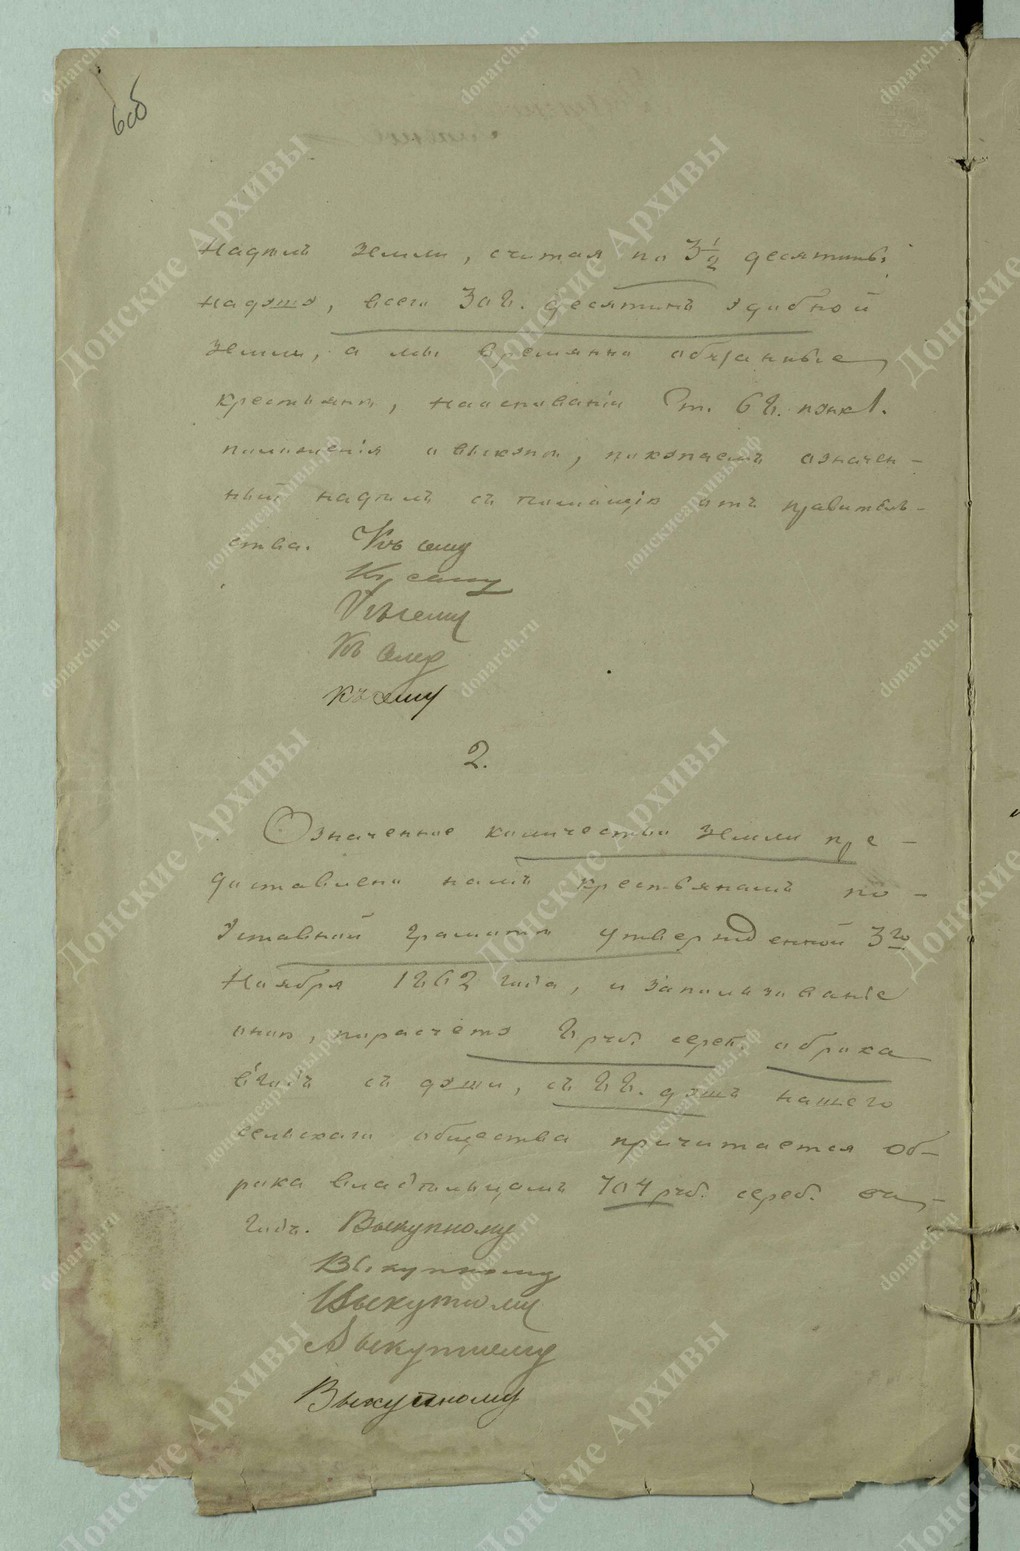 6об
Надѣлъ земли, считая по 3½ десятины
на душу, всего 308. десятинъ удобной
земли, а мы временно обязанные
крестьяне, на основаніи Ст. 68. пунк 1.
положенія о выкупѣ, покупаемъ означен-
ный надѣлъ съ помощію отъ правитель-
ства. Къ сему
Къ сему
Къ сему
Къ сему
Къ сему
2.
Означенное количество земли пре-
доставлено намъ крестьянамъ по-
Уставной грамотѣ утвержденной 3го
Ноября 1862 года, и за пользованіе
оною, по расчету 8 руб. сереб. оброка
въ годъ съ души, съ 88. душъ нашего
сельскаго общества причитается Об-
рока владѣльцамъ 704 руб. сереб. въ
годъ. Выкупному
Выкупному
Выкупному
Выкупному
Выкупному